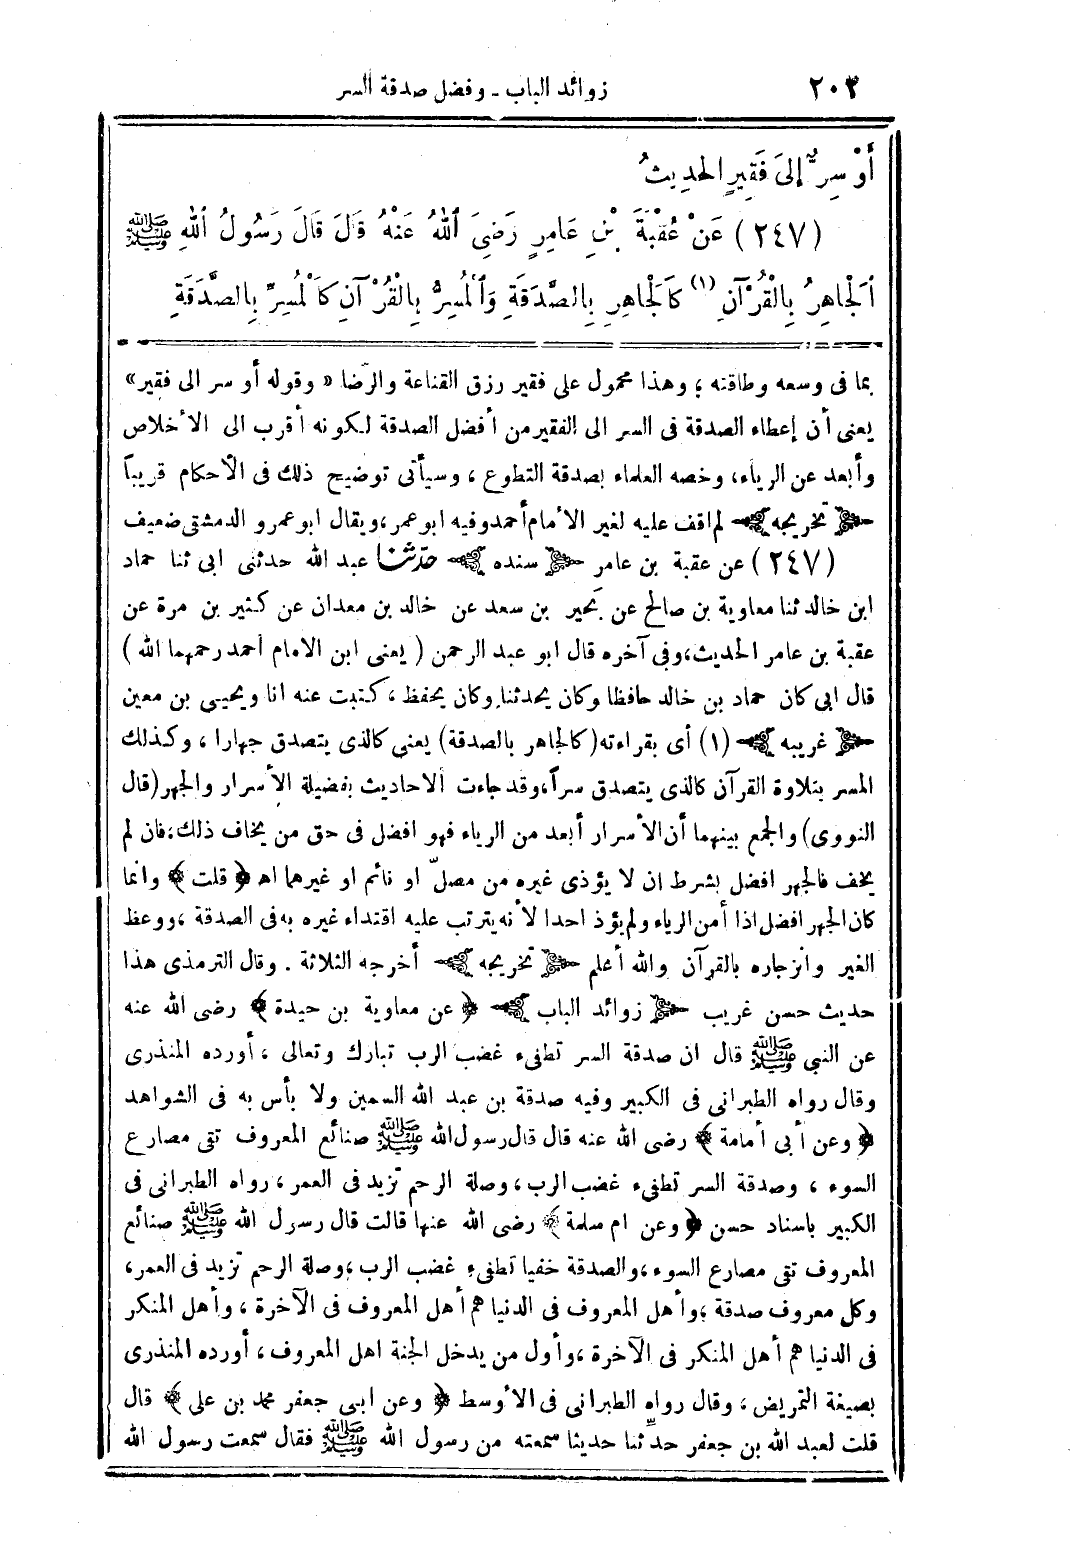 ٢٠٣ زوائد الباب - وفضل صدقة السر
أَوْ سِرٌّ إِلَى فَقِيرٍ الحَدِيثُ
(٢٤٧) عَنْ عُقْبَةَ بْنِ عَامِرٍ رَضِيَ ٱللهُ عَنْهُ قَالَ قَالَ رَسُولُ ٱللهِ ﷺ
ٱلْجَاهِرُ بِالْقُرْآنِ (١) كَالْجَاهِرِ بِالصَّدَقَةِ وَٱلْمُسِرُّ بِالْقُرْآنِ كَالْمُسِرِّ بِالصَّدَقَةِ
بما فى وسعه وطاقته ؛ وهذا محمول على فقير رزق القناعة والرضا « وقوله أو سر الى فقير »
يعنى أن إعطاء الصدقة فى السر الى الفقير من أفضل الصدقة لكونه أقرب الى الأخلاص
وأبعد عن الرياء، وخصه العلماء بصدقة التطوع ، وسيأتى توضيح ذلك فى الأحكام قريباً
﴿ تخريجه ﴾ لم اقف عليه لغير الأمام أحمد وفيه ابو عمر، ويقال ابو عمرو الدمشقى ضعيف
(٢٤٧) عن عقبة بن عامر ﴿ سنده ﴾ حدّثنا عبد الله حدثنى ابى ثنا حماد
ابن خالد ثنا معاوية بن صالح عن بَحير بن سعد عن خالد بن معدان عن كثير بن مرة عن
عقبة بن عامر الحديث، وفى آخره قال ابو عبد الرحمن ( يعنى ابن الامام أحمد رحمهما الله )
قال ابى كان حماد بن خالد حافظا وكان يحدثنا وكان يحفظ ، كتبت عنه انا ويحيى بن معين
﴿ غريبه ﴾ (١) أى بقراءته (كالجاهر بالصدقة) يعنى كالذى يتصدق جهارا ، وكذلك
المسر بتلاوة القرآن كالذى يتصدق سراً، وقد جاءت الاحاديث بفضيلة الأسرار والجهر (قال
النووى) والجمع بينهما أن الأسرار أبعد من الرياء فهو افضل فى حق من يخاف ذلك، فان لم
يخف فالجهر افضل بشرط ان لا يؤذى غيره من مصلّ او نائم او غيرهما اه ﴿ قلت ﴾ وانما
كان الجهر افضل اذا أمن الرياء ولم يؤذ احدا لأنه يترتب عليه اقتداء غيره به فى الصدقة ، ووعظ
الغير وانزجاره بالقرآن والله أعلم ﴿ تخريجه ﴾ أخرجه الثلاثة . وقال الترمذى هذا
حديث حسن غريب ﴿ زوائد الباب ﴾ ﴿ عن معاوية بن حيدة ﴾ رضى الله عنه
عن النبي ﷺ قال ان صدقة السر تطفىء غضب الرب تبارك وتعالى ، أورده المنذرى
وقال رواه الطبرانى فى الكبير وفيه صدقة بن عبد الله السمين ولا بأس به فى الشواهد
﴿ وعن أبى أمامة ﴾ رضى الله عنه قال قال رسول الله ﷺ صنائع المعروف تقى مصارع
السوء ، وصدقة السر تطفىء غضب الرب، وصلة الرحم تزيد فى العمر، رواه الطبرانى فى
الكبير باسناد حسن ﴿ وعن ام سلمة ﴾ رضى الله عنها قالت قال رسول الله ﷺ صنائع
المعروف تقى مصارع السوء، والصدقة خفيا تطفىء غضب الرب، وصلة الرحم تزيد فى العمر،
وكل معروف صدقة ؛ وأهل المعروف فى الدنيا هم أهل المعروف فى الآخرة ، وأهل المنكر
فى الدنيا هم أهل المنكر فى الآخرة ، وأول من يدخل الجنة اهل المعروف ، أورده المنذرى
بصيغة التمريض ، وقال رواه الطبرانى فى الأوسط ﴿ وعن ابى جعفر محمد بن على ﴾ قال
قلت لعبد الله بن جعفر حدّثنا حديثا سمعته من رسول الله ﷺ فقال سمعت رسول الله